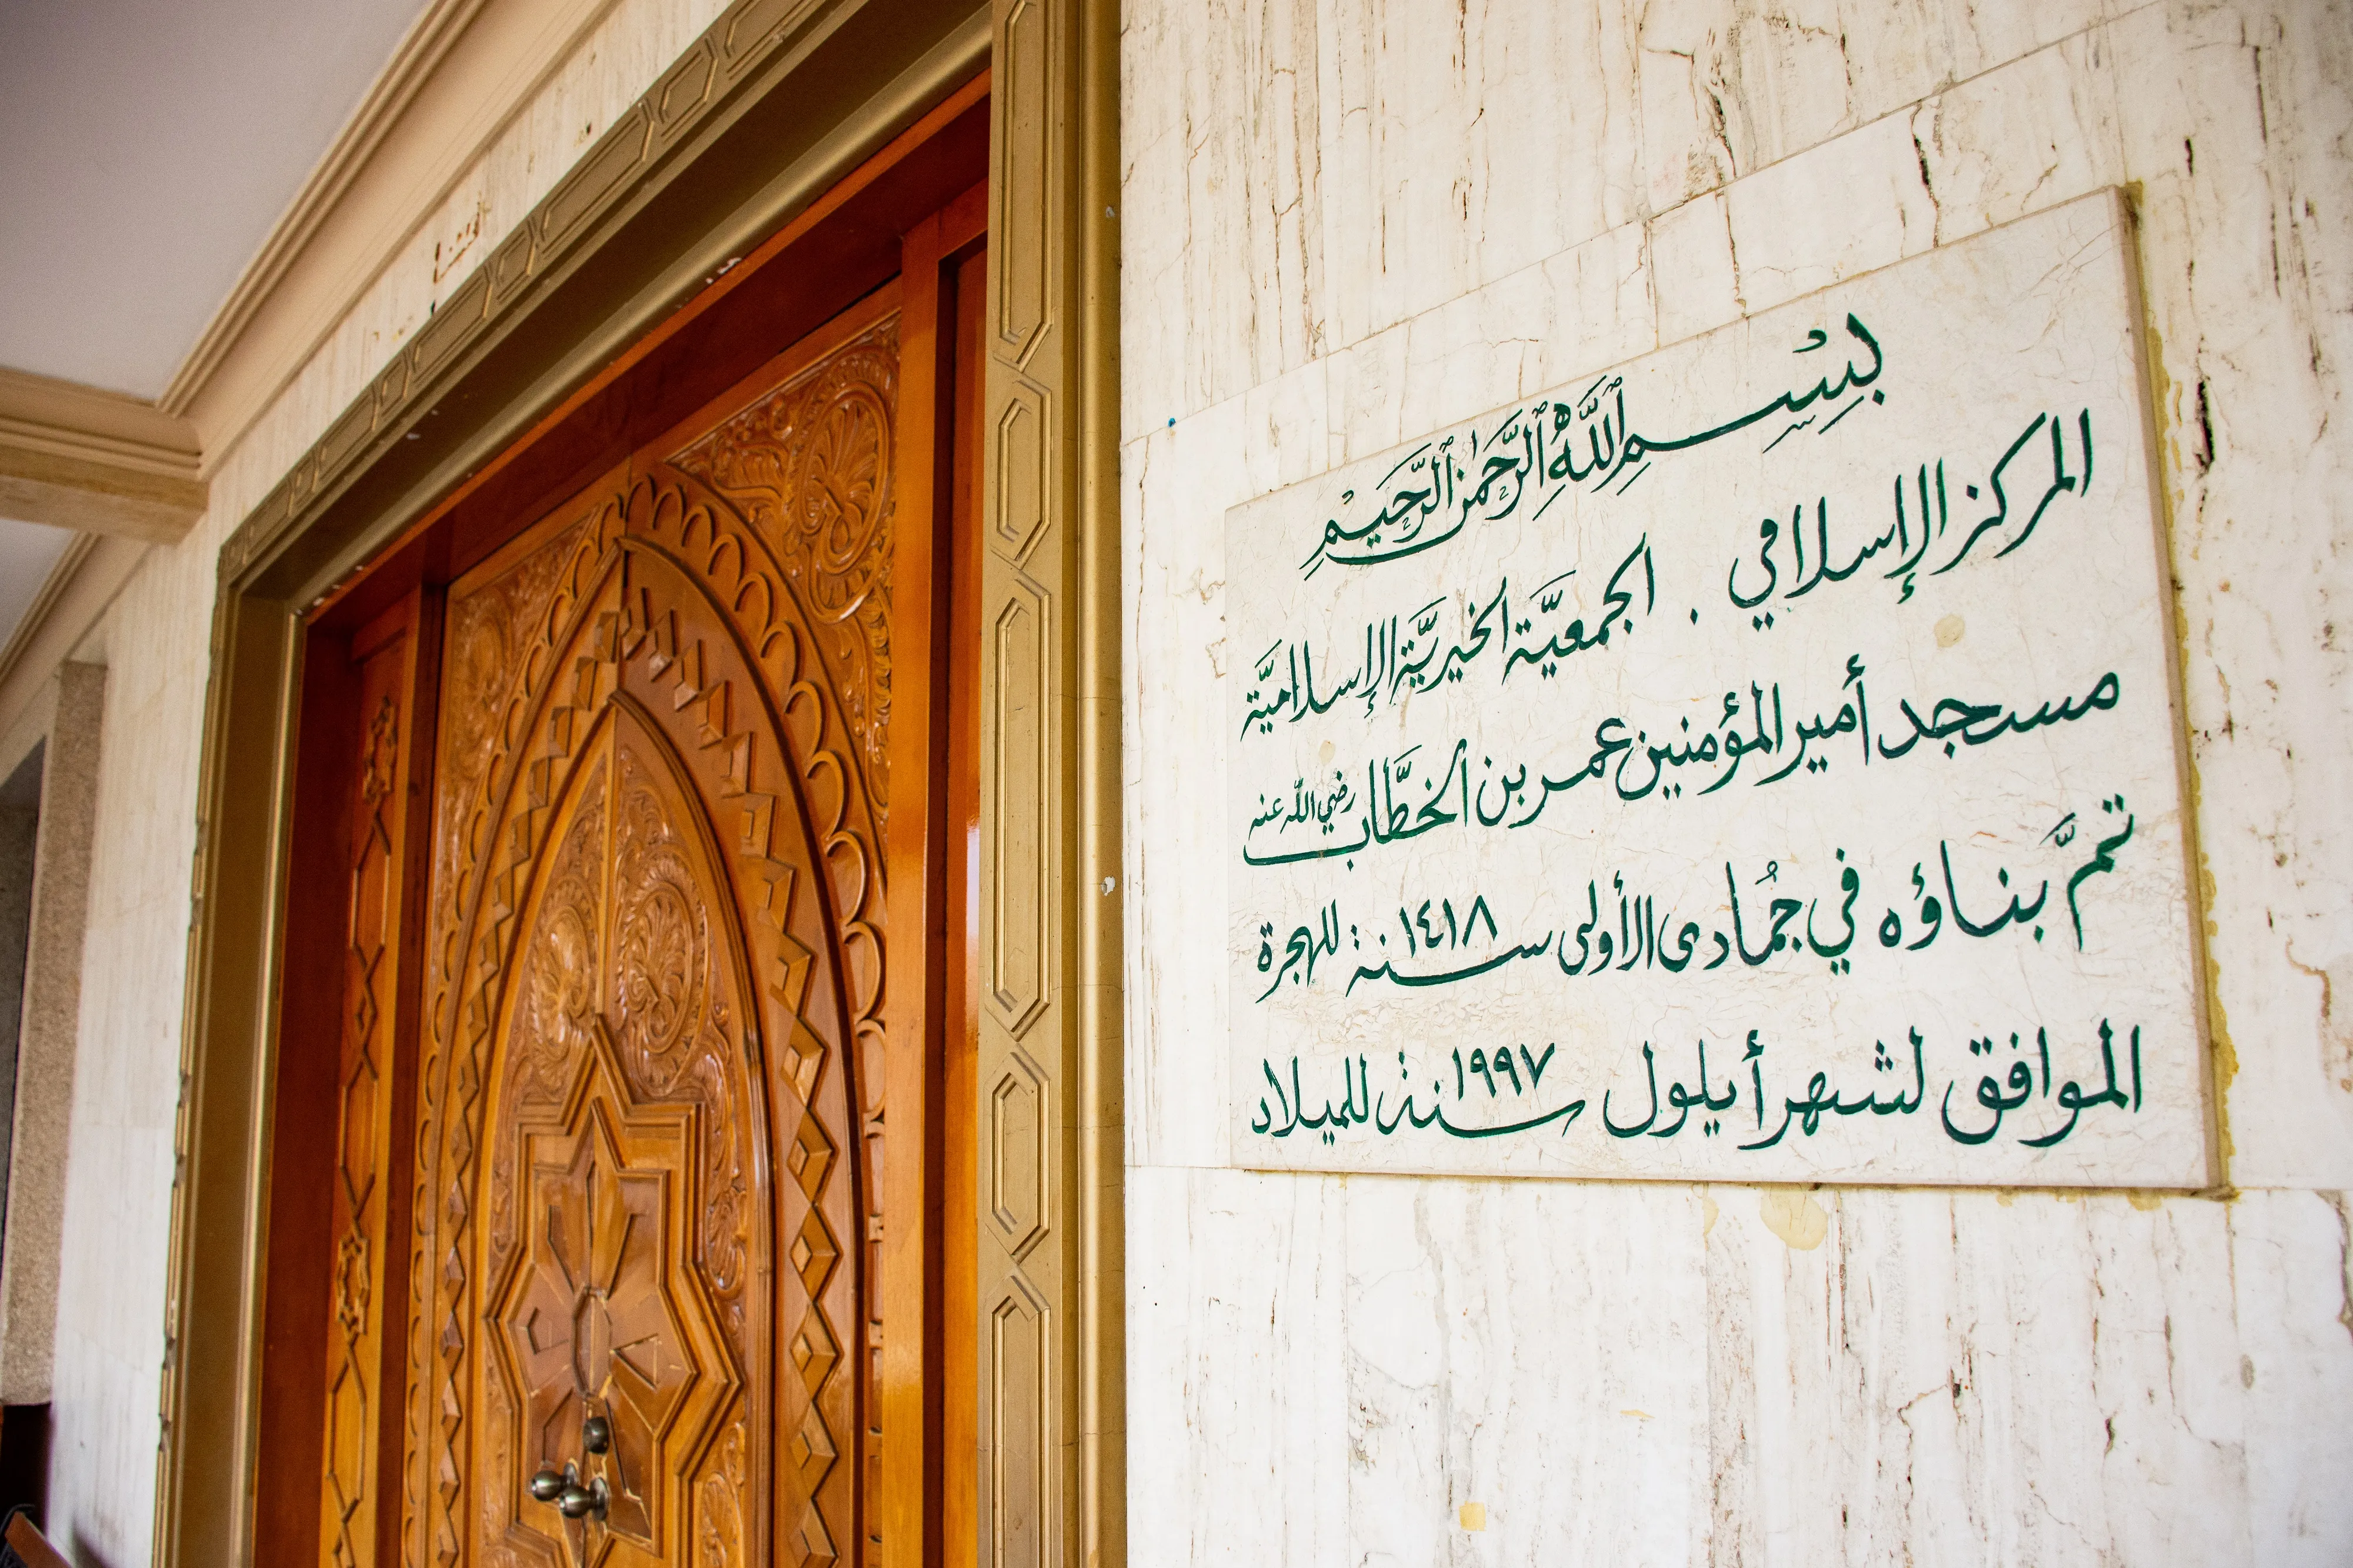 بِسْمِ ٱللَّهِ ٱلرَّحْمَٰنِ ٱلرَّحِيمِ
المركز الإسلامي . الجمعيَّة الخيريَّة الإسلاميَّة
مسجد أمير المؤمنين عمر بن الخطَّاب رضي الله عنه
تمَّ بناؤه في جُمادى الأولى سنة ١٤١٨ للهجرة
الموافق لشهر أيلول سنة ١٩٩٧ للميلاد